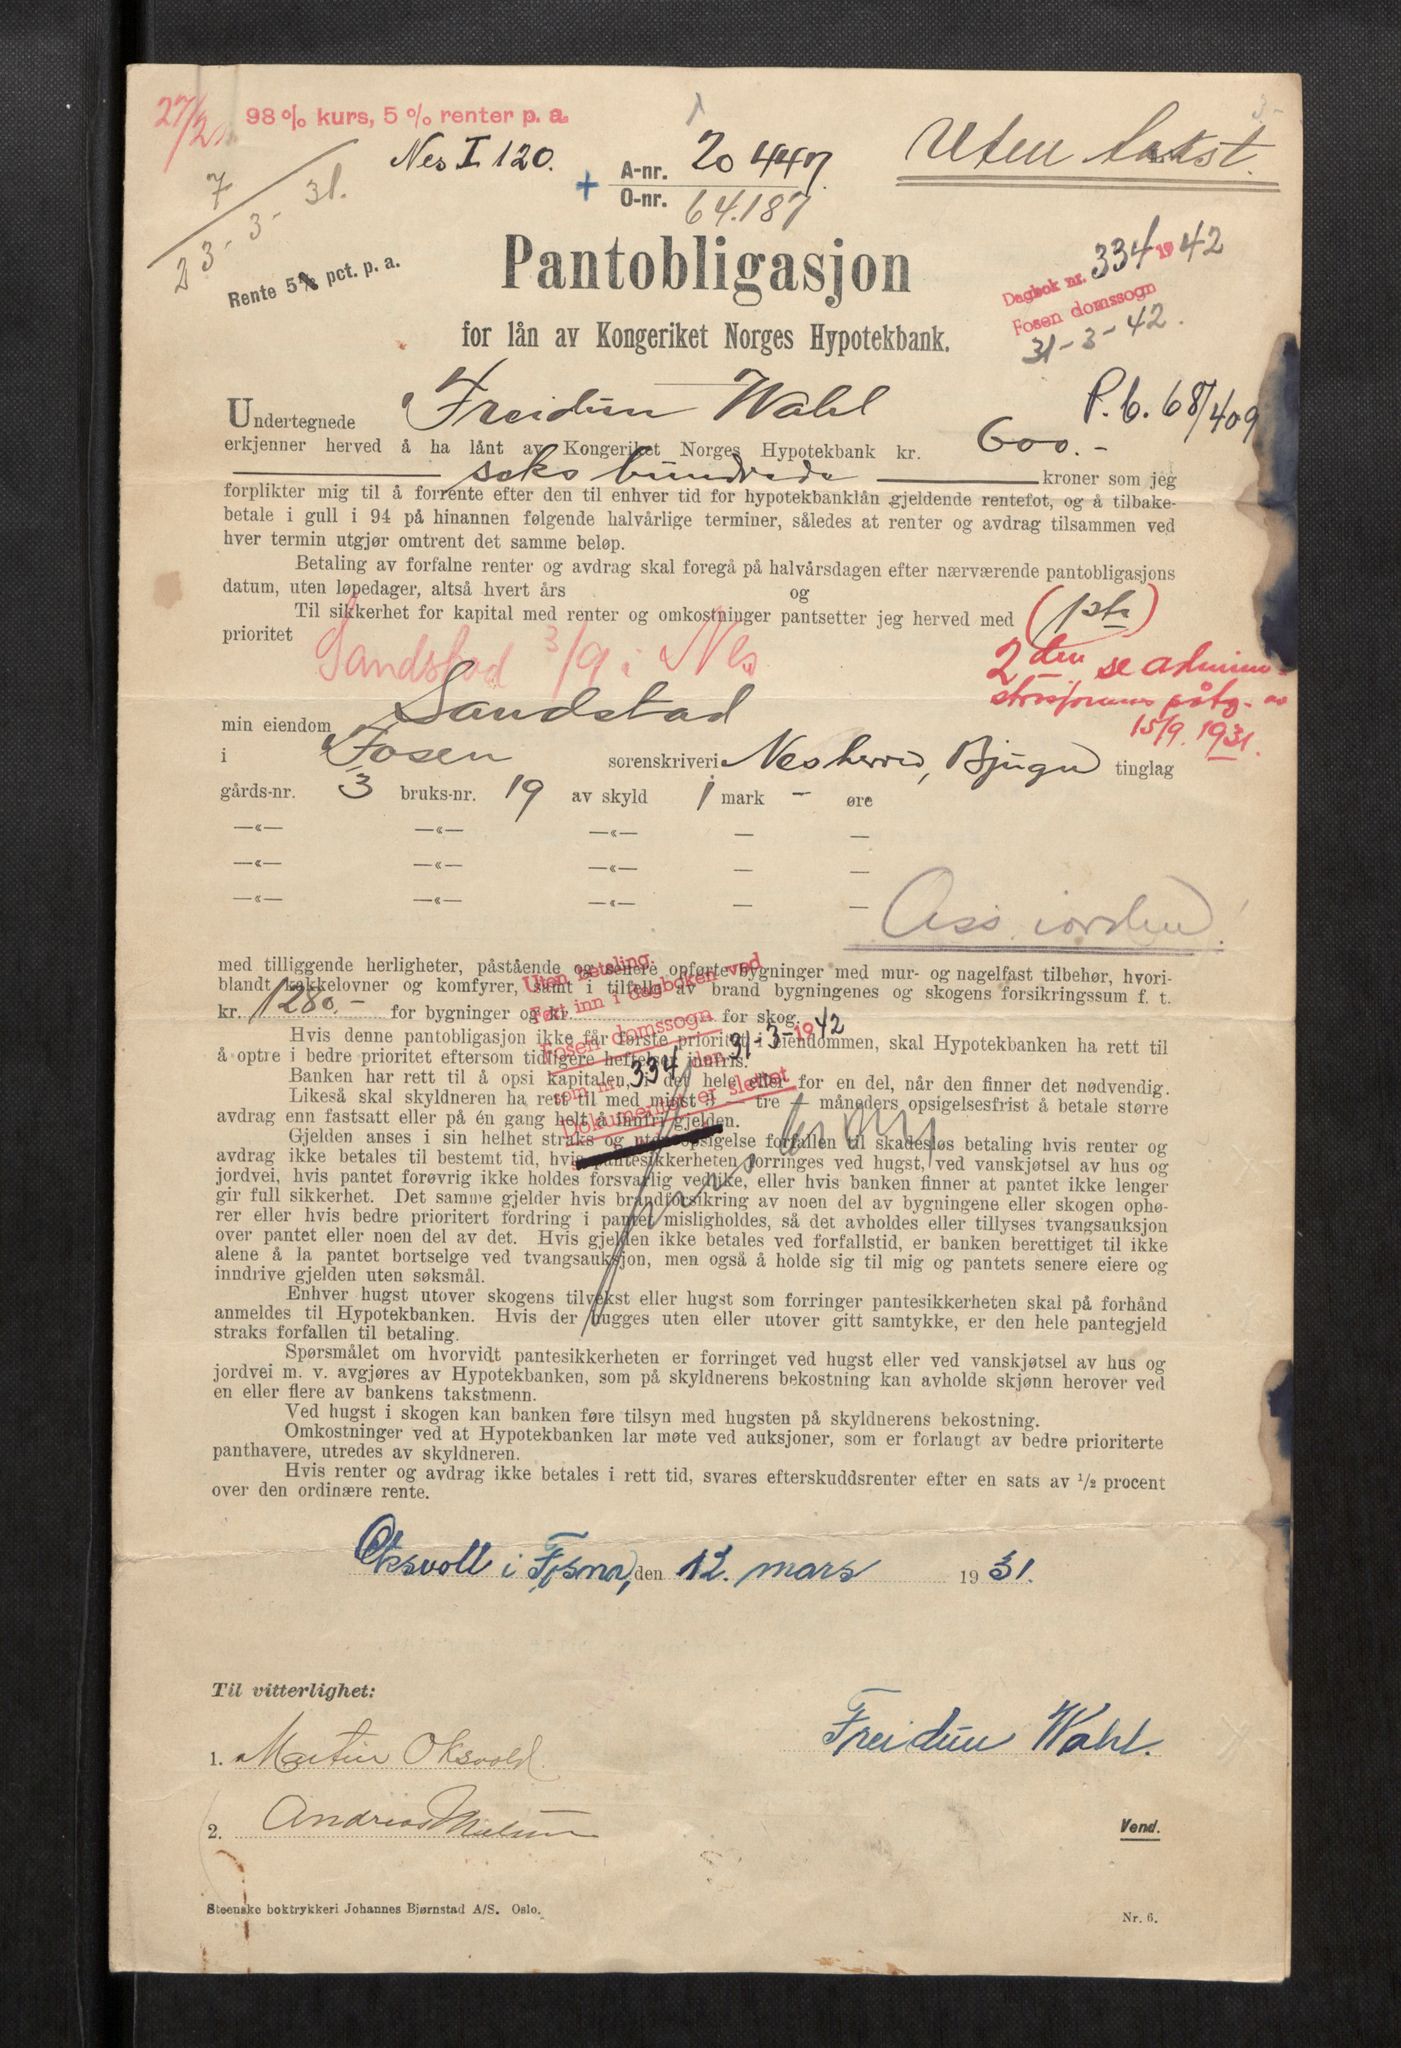 27/2
98 % kurs, 5 % renter p. a.
Nes I 120.
+ A-nr. 20 447.
O-nr. 64.187
Uten takst.
7
23-3-31.
Rente 5 pct. p. a.
Pantobligasjon
for lån av Kongeriket Norges Hypotekbank.
Dagbok nr. 334 1942
Fosen domssogn
31-3-42.
P.b. 68/409
Undertegnede Freidun Wahl
erkjenner herved å ha lånt av Kongeriket Norges Hypotekbank kr. 600.-
seks hundrede kroner som jeg
forplikter mig til å forrente efter den til enhver tid for hypotekbanklån gjeldende rentefot, og å tilbake-
betale i gull i 94 på hinannen følgende halvårlige terminer, således at renter og avdrag tilsammen ved
hver termin utgjør omtrent det samme beløp.
Betaling av forfalne renter og avdrag skal foregå på halvårsdagen efter nærværende pantobligasjons
datum, uten løpedager, altså hvert års og
Til sikkerhet for kapital med renter og omkostninger pantsetter jeg herved med (1ste)
prioritet
Sandstad 3/9 i Nes
2den se admini-
strasjonens påtg. av
15/9. 1931.
min eiendom Sandstad
i Fosen sorenskriveri Nes herred, Bjugn tinglag
gårds-nr. 3 bruks-nr. 19 av skyld 1 mark - øre
—«— —«— —«— — —
—«— —«— —«— — —
—«— —«— —«— — —
Ass. i orden!
med tilliggende herligheter, påstående og senere opførte bygninger med mur- og nagelfast tilbehør, hvori-
blandt kakkelovner og komfyrer, samt i tilfelle av brand bygningenes og skogens forsikringssum f. t.
kr. 1280.- for bygninger og kr. for skog.
Uten betaling.
Ført inn i dagboken ved
Fosen domssogn
som nr. 334 den 31-3-1942
Dokumentet er slettet
Hvis denne pantobligasjon ikke får første prioritet i eiendommen, skal Hypotekbanken ha rett til
å optre i bedre prioritet eftersom tidligere heftelser innfris.
Banken har rett til å opsi kapitalen, i det hele eller for en del, når den finner det nødvendig.
Likeså skal skyldneren ha rett til med minst 3 — tre — måneders opsigelsesfrist å betale større
avdrag enn fastsatt eller på én gang helt å innfri gjelden.
Gjelden anses i sin helhet straks og uten opsigelse forfallen til skadesløs betaling hvis renter og
avdrag ikke betales til bestemt tid, hvis pantesikkerheten forringes ved hugst, ved vanskjøtsel av hus og
jordvei, hvis pantet forøvrig ikke holdes forsvarlig vedlike, eller hvis banken finner at pantet ikke lenger
gir full sikkerhet. Det samme gjelder hvis brandforsikring av noen del av bygningene eller skogen ophø-
rer eller hvis bedre prioritert fordring i pantet misligholdes, så det avholdes eller tillyses tvangsauksjon
over pantet eller noen del av det. Hvis gjelden ikke betales ved forfallstid, er banken berettiget til ikke
alene å la pantet bortselge ved tvangsauksjon, men også å holde sig til mig og pantets senere eiere og
inndrive gjelden uten søksmål.
Enhver hugst utover skogens tilvekst eller hugst som forringer pantesikkerheten skal på forhånd
anmeldes til Hypotekbanken. Hvis der hugges uten eller utover gitt samtykke, er den hele pantegjeld
straks forfallen til betaling.
Spørsmålet om hvorvidt pantesikkerheten er forringet ved hugst eller ved vanskjøtsel av hus og
jordvei m. v. avgjøres av Hypotekbanken, som på skyldnerens bekostning kan avholde skjønn herover ved
en eller flere av bankens takstmenn.
Ved hugst i skogen kan banken føre tilsyn med hugsten på skyldnerens bekostning.
Omkostninger ved at Hypotekbanken lar møte ved auksjoner, som er forlangt av bedre prioriterte
panthavere, utredes av skyldneren.
Hvis renter og avdrag ikke betales i rett tid, svares efterskuddsrenter efter en sats av 1/2 procent
over den ordinære rente.
Oksvoll i Fosna, den 12. mars 1931.
Til vitterlighet:
Freidun Wahl.
1. Martin Oksvold.
2. Andreas
Vend.
Steenske boktrykkeri Johannes Bjørnstad A/S. Oslo.
Nr. 6.